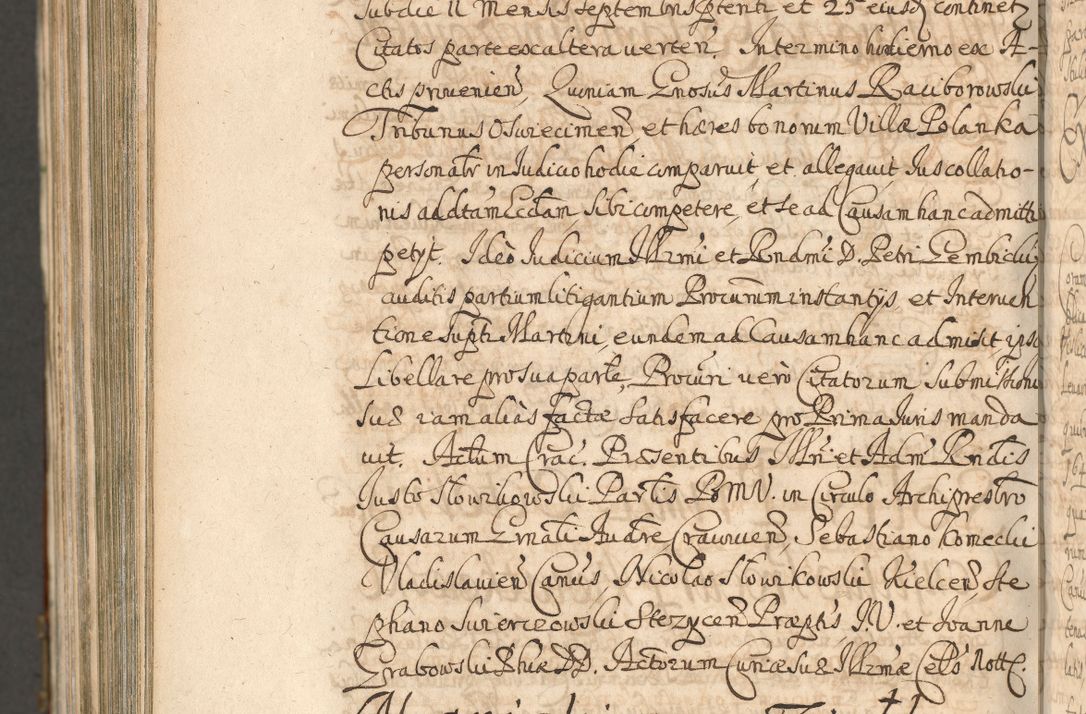 Subdie 11 Mensis Septembris ptenti et 25 eiusd continet
Citatos parte ex altera verteñ. In termino hodierno ex A-
ctis prouenieñ, Quoniam Gnosus Martinus Raciborowski
Tribunus Oswiecimeñ et hæres bonorum Villæ Polanka
personalr in Iudicio hodie comparuit, et allegauit Ius collatio-
nis ad dtam Ecclam, sibi competere, et se ad Causam hanc admitti
petyt. Ideò Iudicium Illrmi et Rndmi D. Petri Gembicki
auditis partium litigantium Procurum instantijs et Interuen
tione supti Martini, eundem ad Causam hanc admisit ipsq
Libellare pro sua parte, Procuri verò Citatorum submissioni
suæ iam aliàs factæ satisfacere pro Prima Iuris manda
uit. Actum Crac. Præsentibus Illri et Adm Rndis
Iusto Słowikowski Parlis B M V. in Circulo Archipresbro
Causarum Gnali Audre, Cracouieñ, Sebastiano Komecki
Vladislauieñ Canus Nicolao Słowikowski Kielceñ, Ste
phano Swierczowski Stezyceñ Præptis I.V. et Ioanne
Grabowski Phiæ DD. Actorum Curiæ suæ Illrmæ Celo Nott.